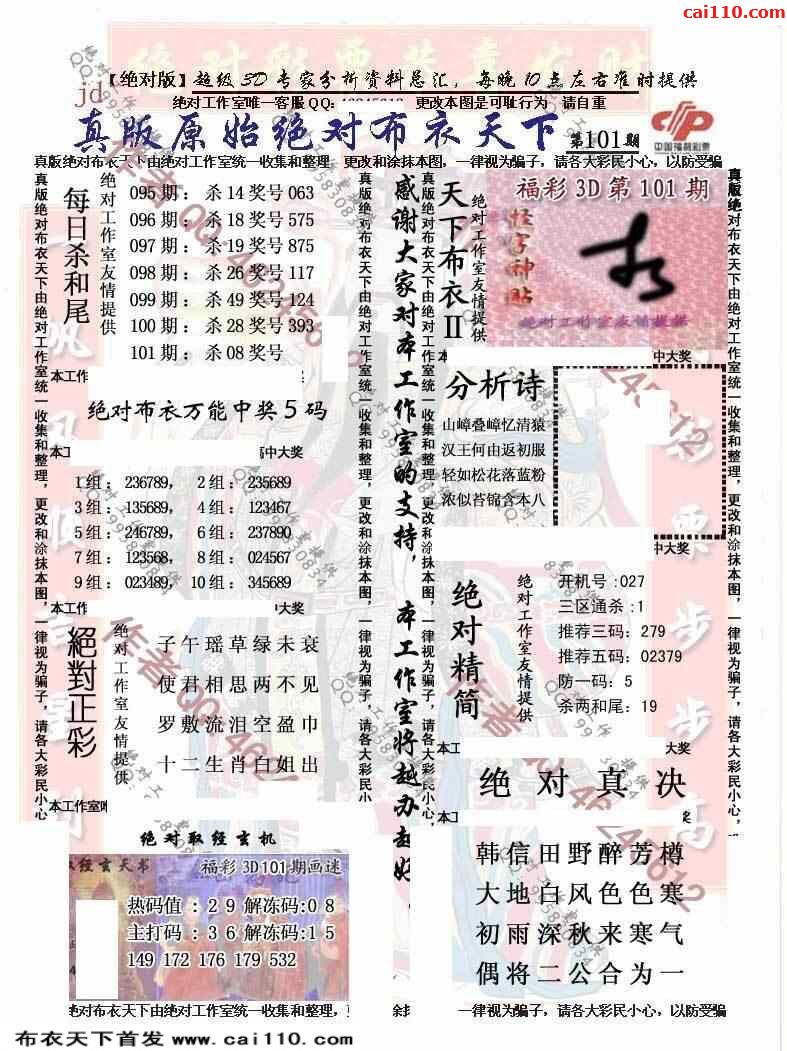 cai110.com
【绝对版】超级3D专家分析资料总汇，每晚10点左右准时提供
jd
绝对工作室唯一客服QQ: 更改本图是可耻行为 请自重
真版原始绝对布衣天下 第101期
中国福利彩票
真版绝对布衣天下由绝对工作室统一收集和整理，更改和涂抹本图，一律视为骗子，请各大彩民小心，以防受骗
真版绝对布衣天下由绝对工作室统一收集和整理，更改和涂抹本图，一律视为骗子，请各大彩民小心，
每日杀和尾
绝对工作室友情提供
095期：杀14奖号063
096期：杀18奖号575
097期：杀19奖号875
098期：杀26奖号117
099期：杀49奖号124
100期：杀28奖号393
101期：杀08奖号
本工作
绝对布衣万能中奖5码
高中大奖
1组：236789， 2组：235689
3组：135689， 4组：123467
5组：246789， 6组：237890
7组：123568， 8组：024567
9组：023489， 10组：345689
本工作
中大奖
絕對正彩
绝对工作室友情提供
子午瑶草绿未衰
使君相思两不见
罗敷流泪空盈巾
十二生肖白姐出
本工作室
绝对取经玄机
取经玄天书 福彩3D101期画迷
热码值：29解冻码：08
主打码：36解冻码：15
149 172 176 179 532
真版绝对布衣天下由绝对工作室统一收集和整理，更改和涂抹本图，一律视为骗子，请各大彩民小
感谢大家对本工作室的支持，本工作室将越办越好，
真版绝对布衣天下由绝对工作室统一收集和整理，更改和涂抹本图，一律视为骗子，请各大彩民小心，
天下布衣II
绝对工作室友情提供
福彩3D第101期
怪字神贴
绝对工作室友情提供
中大奖
分析诗
山嶂叠嶂忆清猿
汉王何由返初服
轻如松花落蓝粉
浓似苔锦含本八
中大奖
绝对精简
绝对工作室友情提供
开机号:027
三区通杀:1
推荐三码：279
推荐五码：02379
防一码：5
杀两和尾：19
大奖
绝对真决
韩信田野醉芳樽
大地白风色色寒
初雨深秋来寒气
偶将二公合为一
真版绝对布衣天下由绝对工作室统一收集和整理，更改和涂抹本图，一律视为骗子，请各大彩民小心，
绝对布衣天下由绝对工作室统一收集和整理，
一律视为骗子，请各大彩民小心，以防受骗
布衣天下首发 www.cai110.com